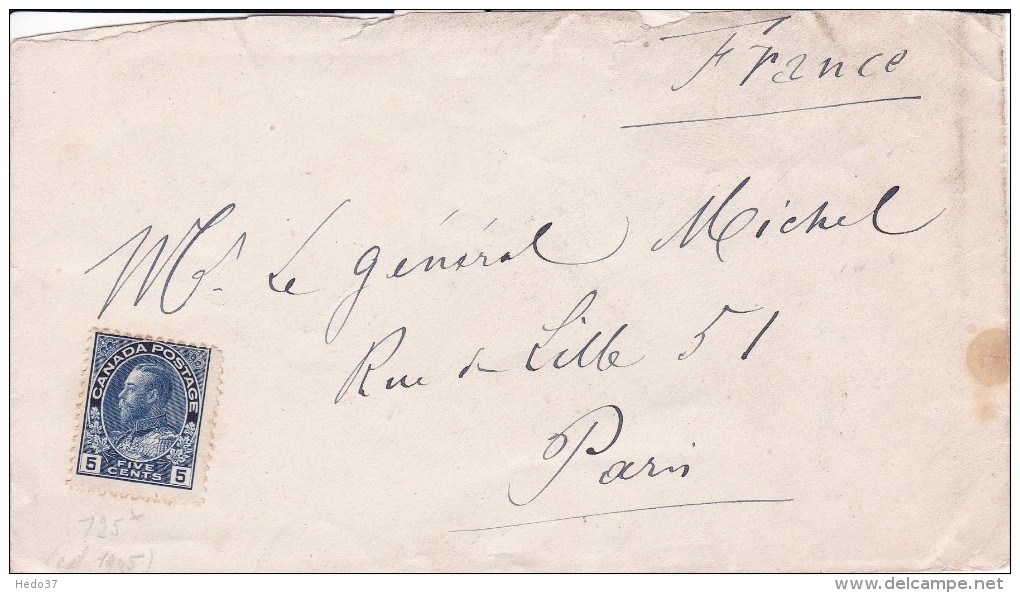 France
Mr. Le Général Michel
Rue de Lille 51
Paris
CANADA POSTAGE
5 FIVE CENTS 5
125 x
Hedo37
delcampe.net